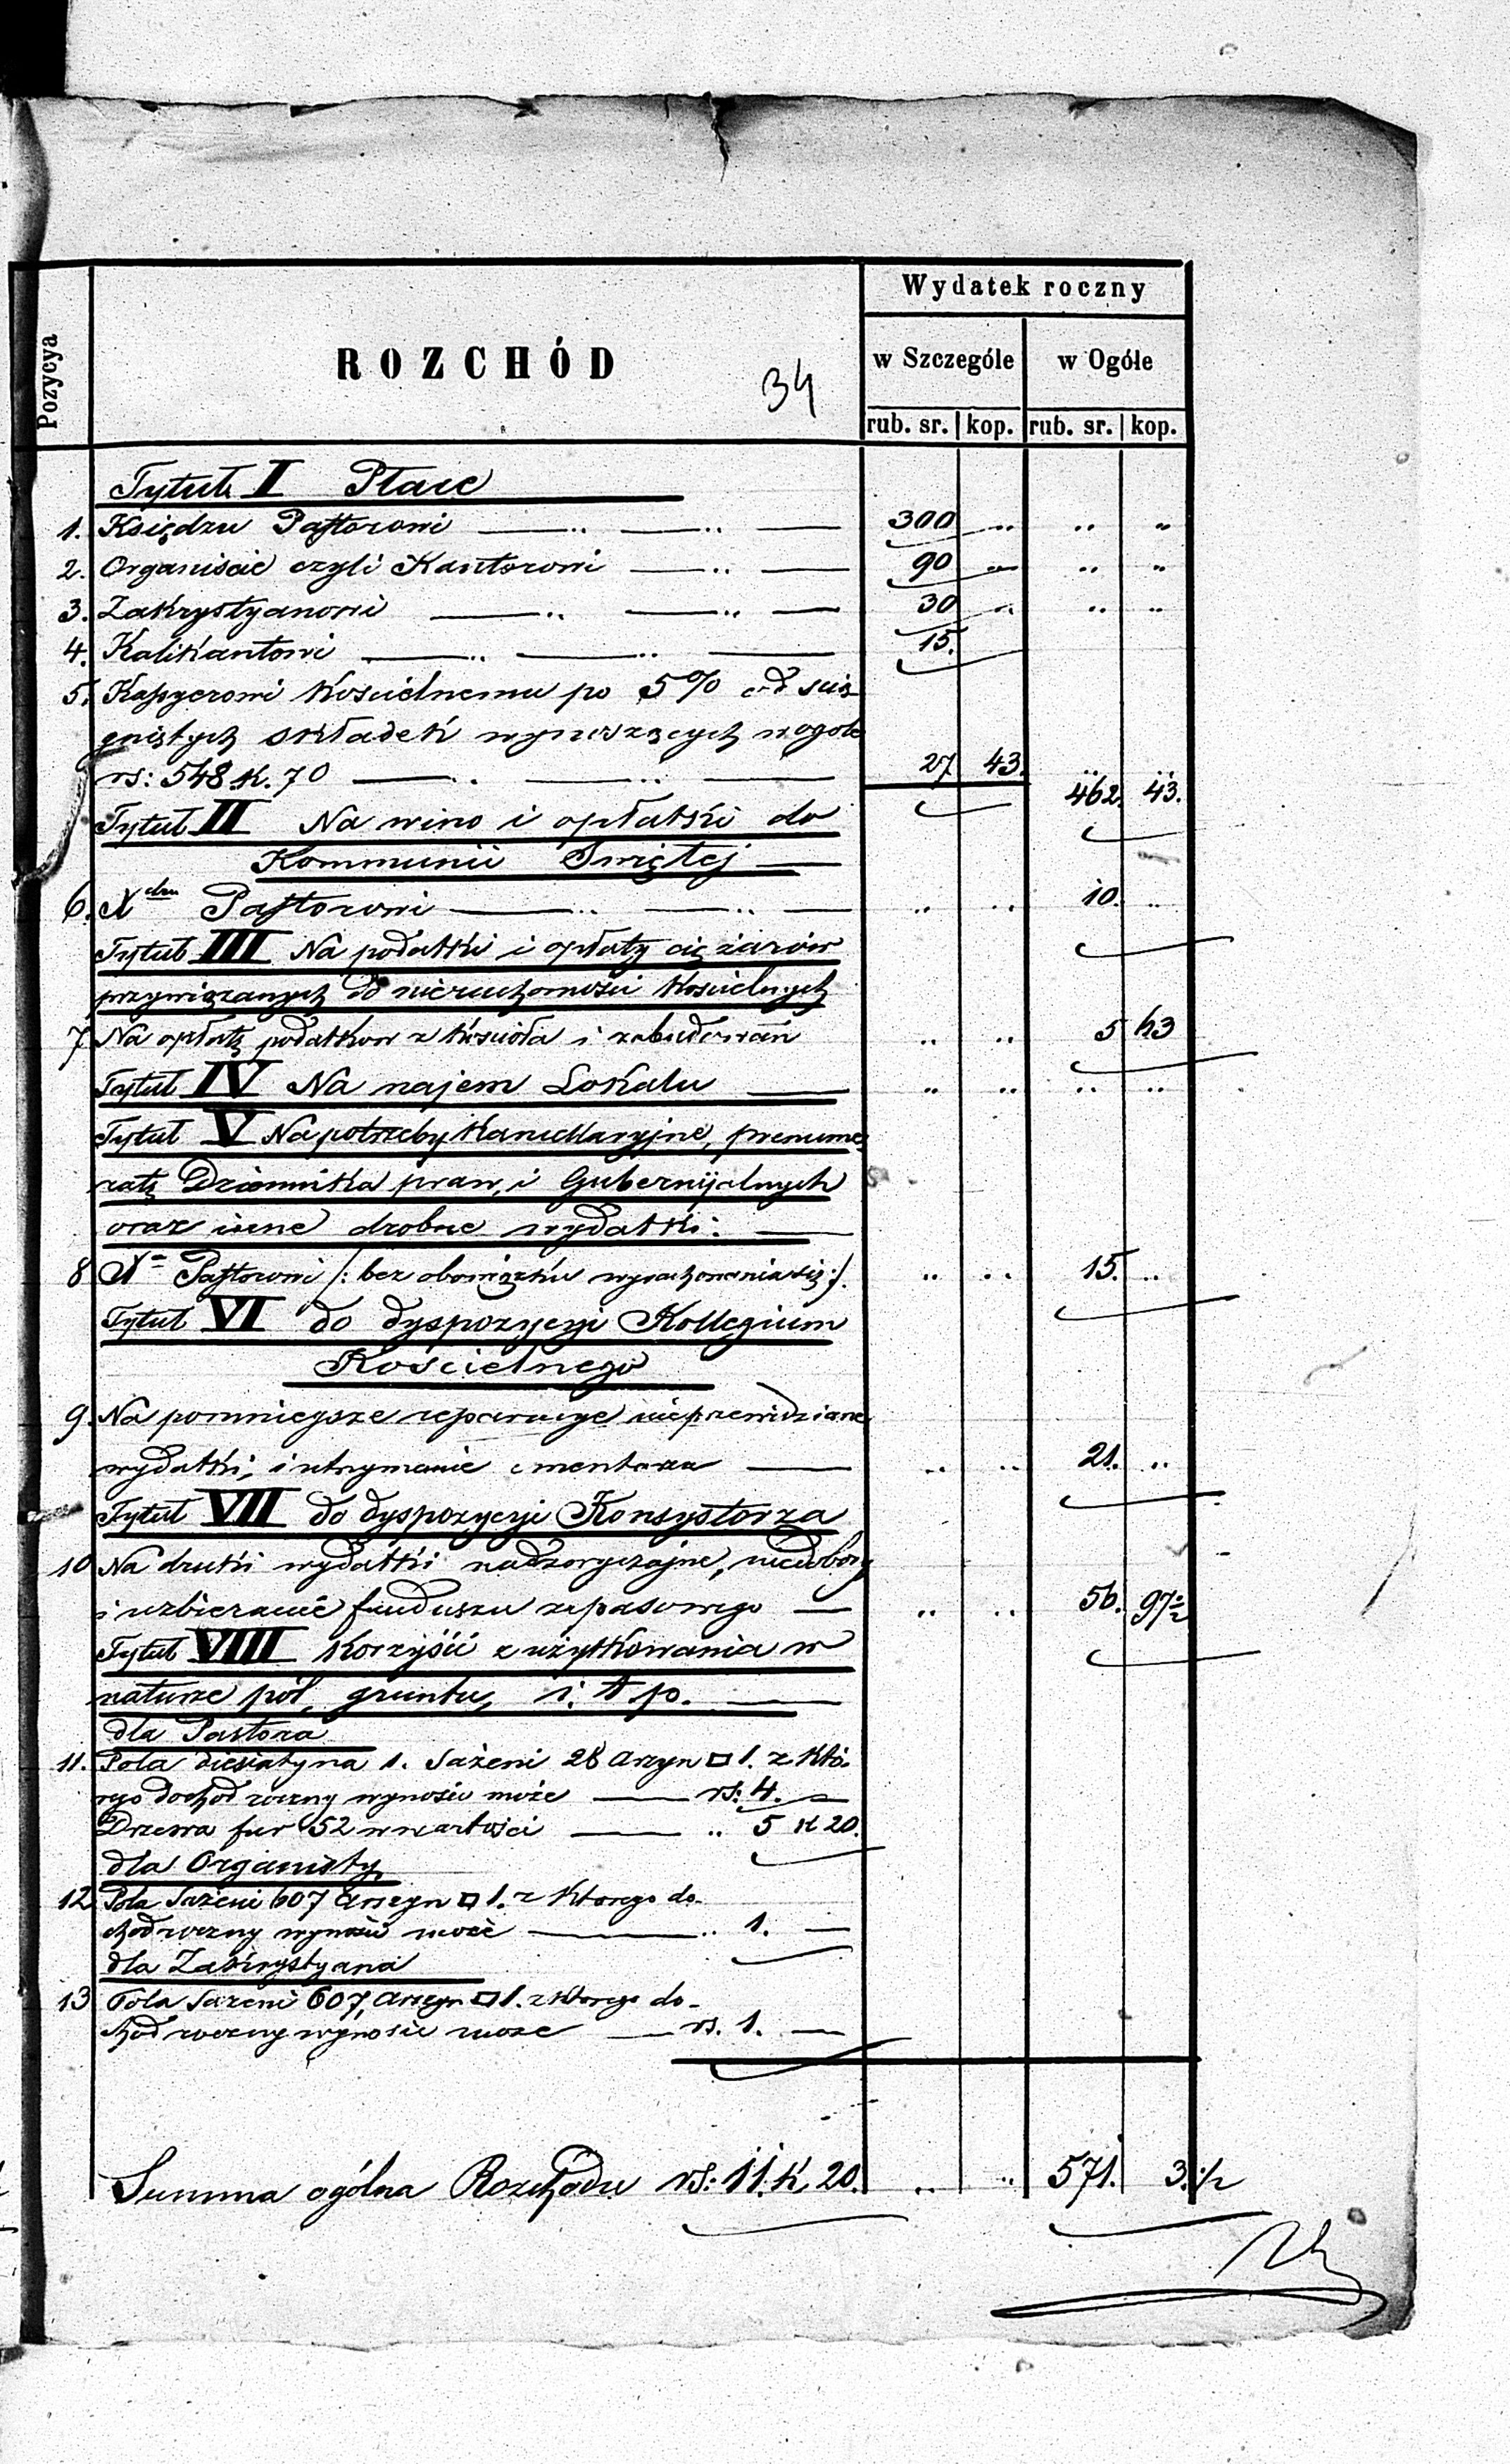 Wydatek roczny
Pozycya
ROZCHÓD
34
w Szczególe w Ogóle
rub. sr. kop. rub. sr. kop.
Tytuł I Płace
1. Księdzu Pastorowi 300 " " "
2. Organiście czyli Kantorowi 90 " " "
3. Zakrystyanowi 30 " " "
4. Kalikantowi 15.
5. Kassyerowi Kościelnemu po 5% od ścią
gniętych składek wynoszących wogóle
rs: 548 k. 70 27 43. 462. 43.
Tytuł II Na wino i opłatki do
Kommunii Świętej
6. Xdzu Pastorowi " " 10. "
Tytuł III Na podatki i opłaty ciężarów
przywiązanych do nieruchomości Kościelnych
7. Na opłatę podatków z Kościoła i zabudowań " " 5 63
Tytuł IV Na najem Lokalu " " " "
Tytuł V Na potrzeby Kancellaryjne, prenume
ratę Dziennika praw, i Gubernijalnych
oraz inne drobne wydatki.
8 X Pastorowi /: bez obowiązku wyrachowania się :/. " " 15. "
Tytuł VI do dyspozycyi Kollegium
Kościelnego
9. Na pomniejsze reparacye nieprzewidziane
wydatki, i utrzymanie cmentarza " " 21. "
Tytuł VII do dyspozycyi Konsystorza
10 Na druki wydatki nadzwyczajne, niedobory
i uzbieranie funduszu zapasowego " " 56. 97½
Tytuł VIII Korzyści z użytkowania w
naturze pól, gruntu, i. t p.
dla Pastora
11. Pola diesiatyna 1. Sażeni 28 Arszyn □ 1. z któ-
rego dochód roczny wynosić może rs: 4. —
Drzewa fur 52 wartości " 5 k 20.
dla Organisty
12 Pola Sażeni 607 Arszyn □ 1. z którego do-
chód roczny wynosić może " 1. —
dla Zakrystyana
13 Pola Sażeni 607, Arszyn □ 1. z którego do-
chód roczny wynosić może rs. 1. —
Summa ogólna Rozchodu rs: 11. k. 20. " " 571. 3.½